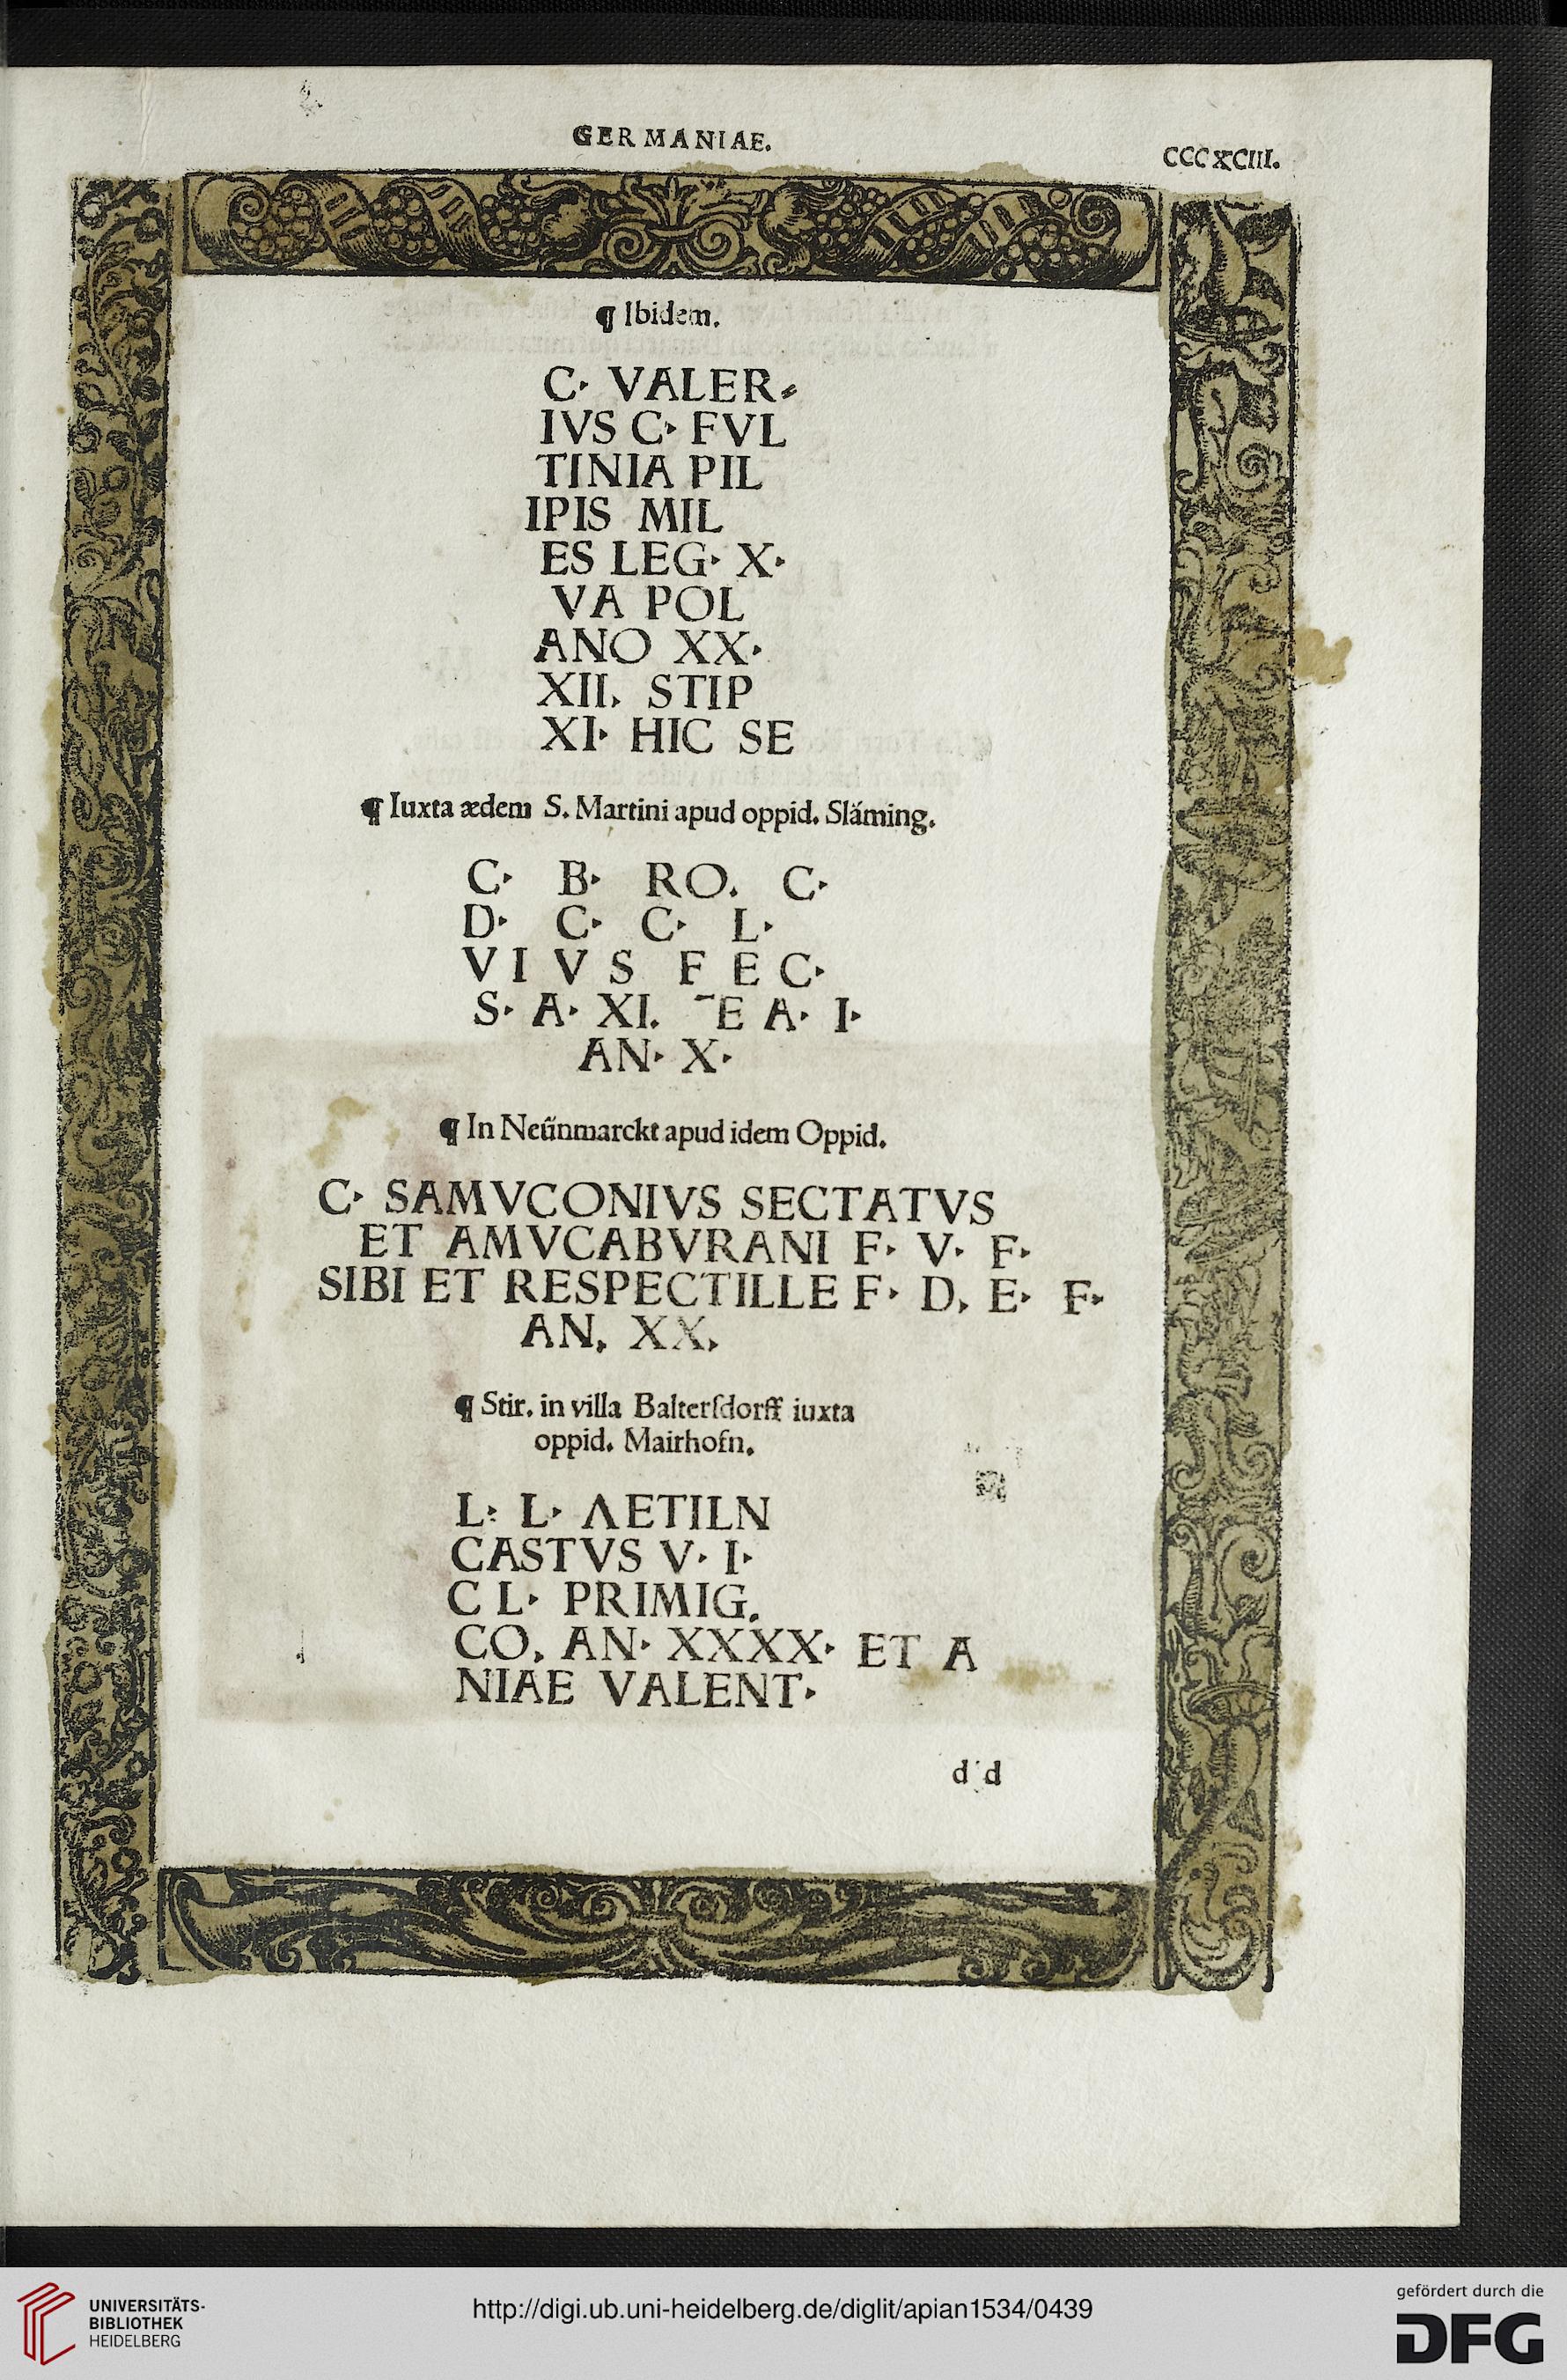 GERMANIAE.
CCCXCIII.
¶ Ibidem.
C· VALER⸗
IVS C· FVL
TINIA PIL
IPIS MIL
ES LEG· X·
VA POL
ANO XX·
XII, STIP
XI· HIC SE
¶ Iuxta ædem S. Martini apud oppid. Sláming.
C· B· RO. C·
D· C· C· L·
VIVS FEC·
S· A· XI. ¯E A· I·
AN· X·
¶ In Neűnmarckt apud idem Oppid.
C· SAMVCONIVS SECTATVS
ET AMVCABVRANI F· V· F·
SIBI ET RESPECTILLE F· D, E· F·
AN, XX,
¶ Stir. in villa Balterſdorff iuxta
oppid. Mairhofn.
L: L· ΛETILN
CASTVS V· I·
C L· PRIMIG.
CO, AN· XXXX· ET A
NIAE VALENT·
d d
UNIVERSITÄTS-
BIBLIOTHEK
HEIDELBERG
http://digi.ub.uni-heidelberg.de/diglit/apian1534/0439
gefördert durch die
DFG